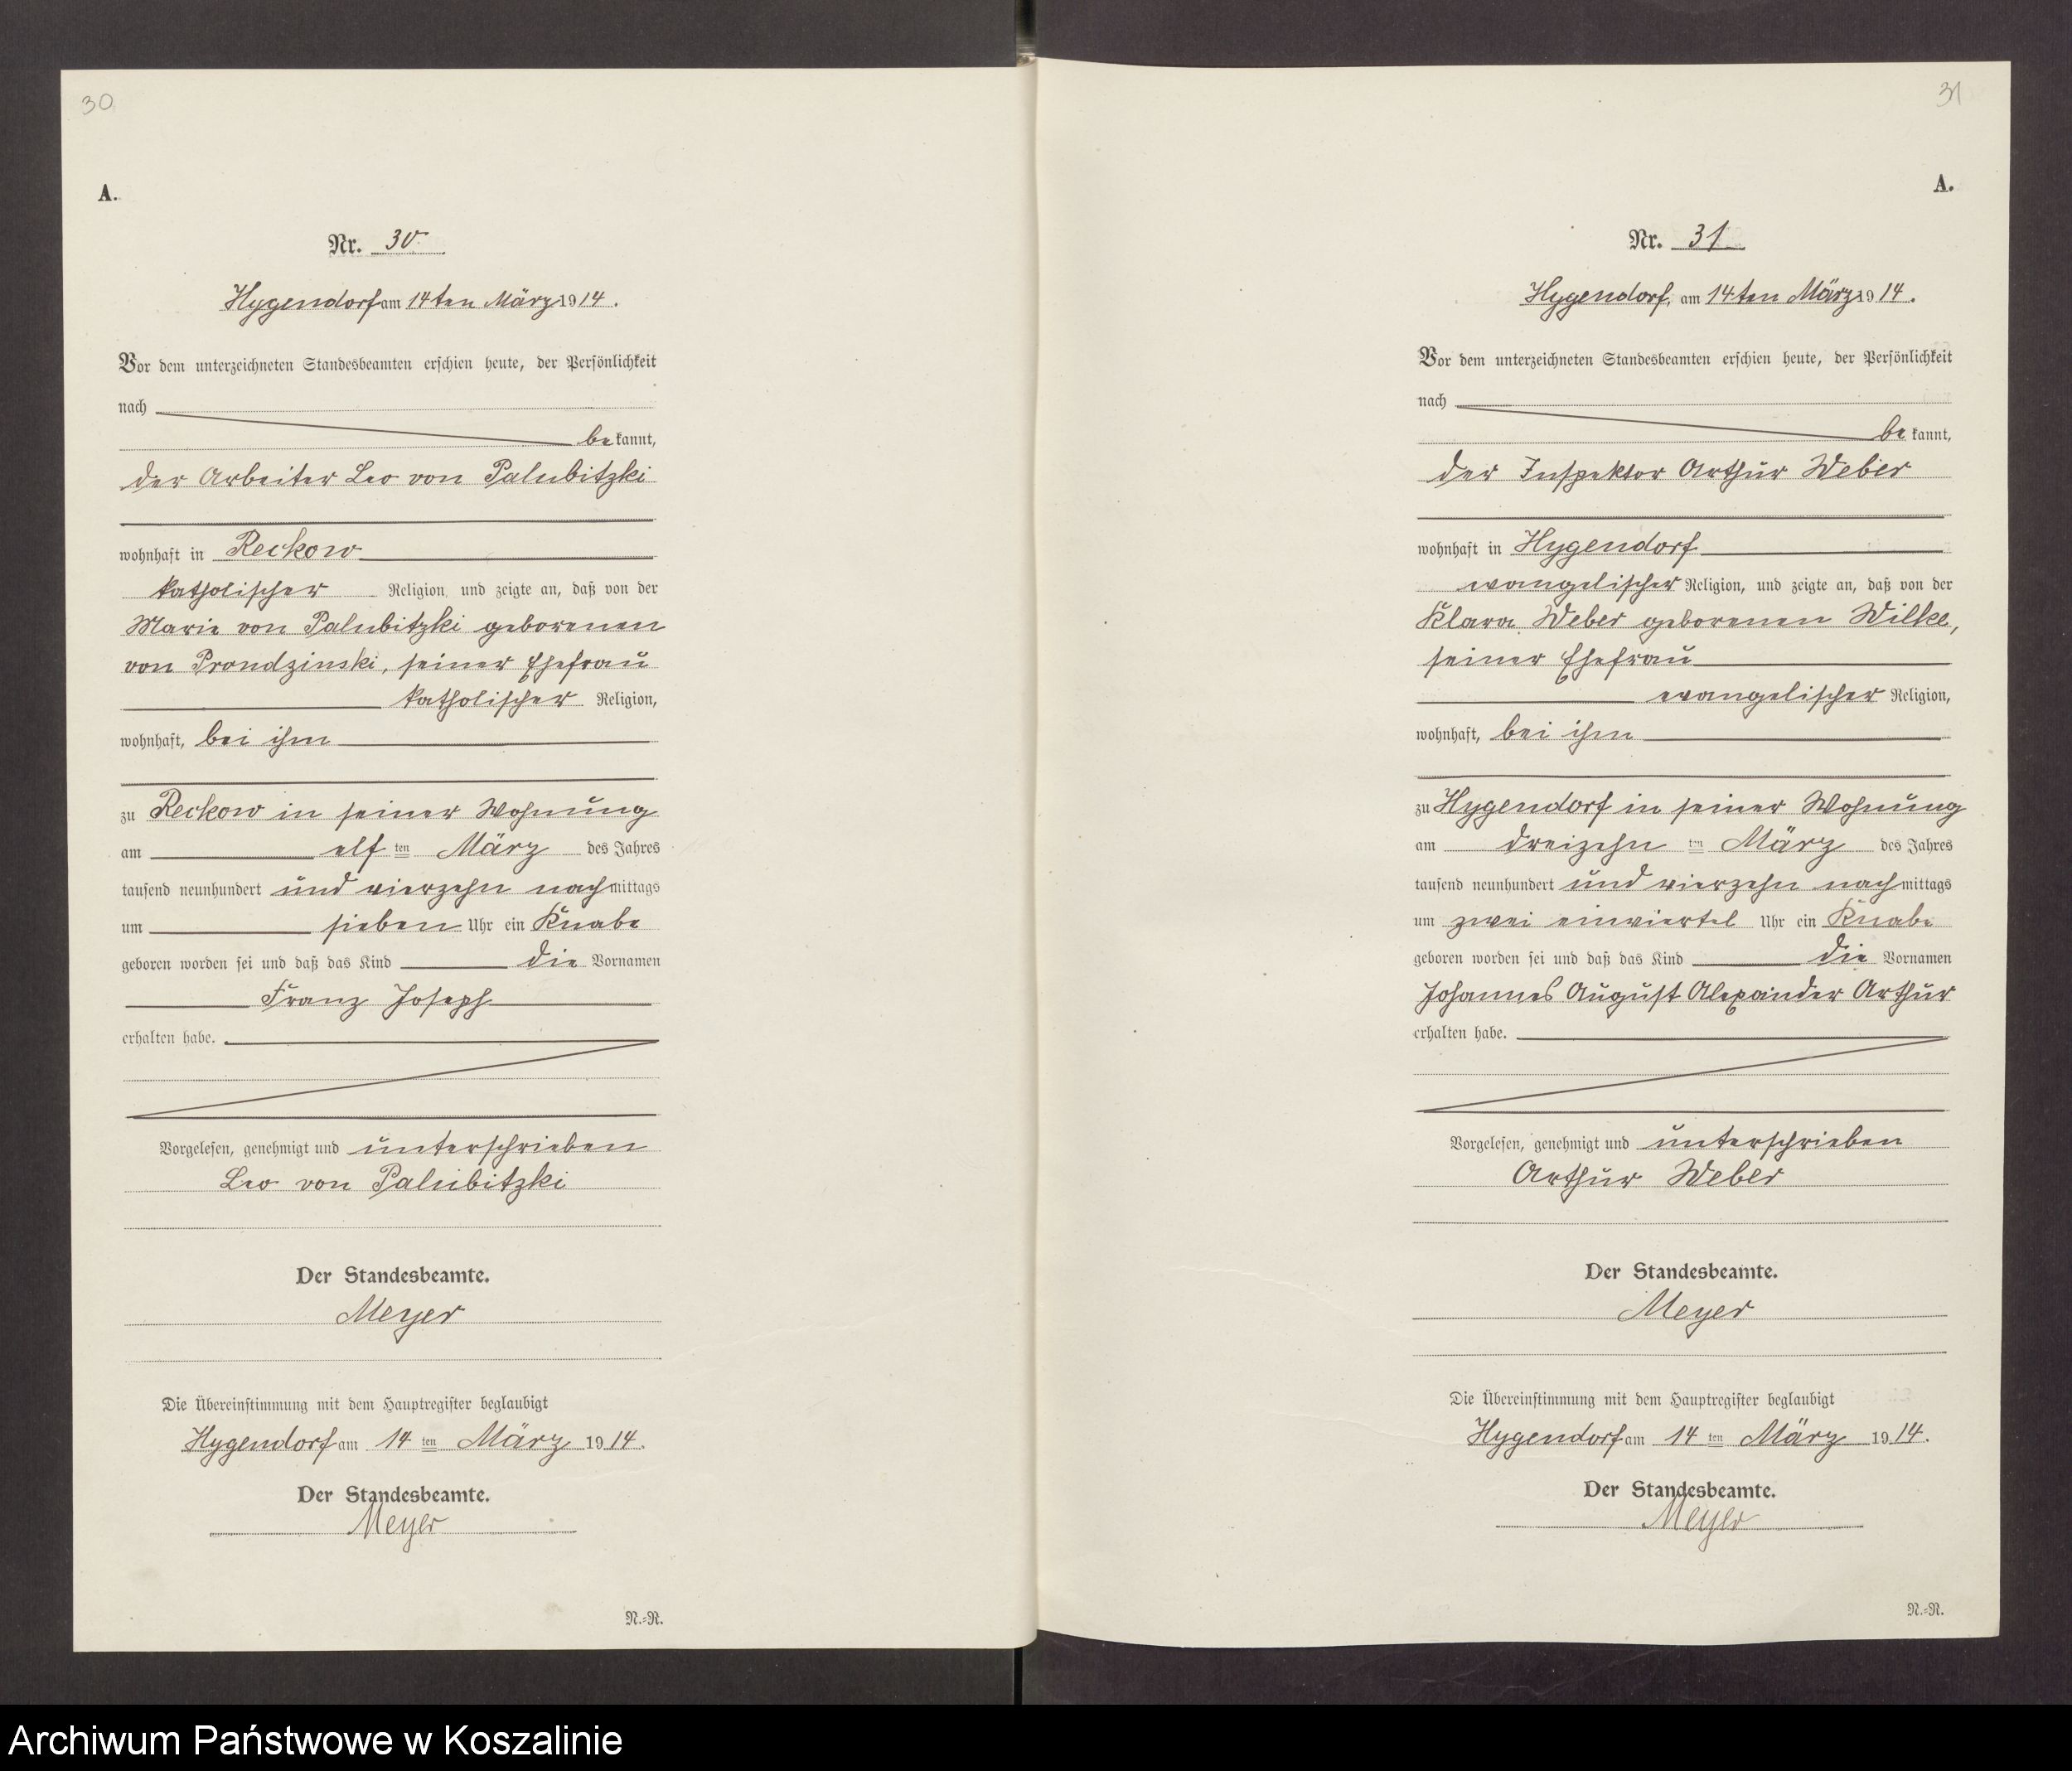 30
A.
Nr. 30.
Hygendorf am 14ten März 1914.
Vor dem unterzeichneten Standesbeamten erschien heute, der Persönlichkeit
nach
bekannt,
der Arbeiter Leo von Palubitzki
wohnhaft in Reckow
katholischer Religion, und zeigte an, daß von der
Marie von Palubitzki geborenen
von Prondzinski, seiner Ehefrau
katholischer Religion,
wohnhaft, bei ihm
zu Reckow in seiner Wohnung
am elf ten März des Jahres
tausend neunhundert und vierzehn nachmittags
um sieben Uhr ein Knabe
geboren worden sei und daß das Kind die Vornamen
Franz Joseph
erhalten habe.
Vorgelesen, genehmigt und unterschrieben
Leo von Palubitzki
Der Standesbeamte.
Meyer
Die Übereinstimmung mit dem Hauptregister beglaubigt
Hygendorf am 14 ten März 1914.
Der Standesbeamte.
Meyer
N.-R.
31
A.
Nr. 31
Hygendorf, am 14ten März 1914.
Vor dem unterzeichneten Standesbeamten erschien heute, der Persönlichkeit
nach
bekannt,
der Inspektor Arthur Weber
wohnhaft in Hygendorf
evangelischer Religion, und zeigte an, daß von der
Klara Weber geborenen Wilke,
seiner Ehefrau
evangelischer Religion,
wohnhaft, bei ihm
zu Hygendorf in seiner Wohnung
am dreizehn ten März des Jahres
tausend neunhundert und vierzehn nachmittags
um zwei einviertel Uhr ein Knabe
geboren worden sei und daß das Kind die Vornamen
Johannes August Alexander Arthur
erhalten habe.
Vorgelesen, genehmigt und unterschrieben
Arthur Weber
Der Standesbeamte.
Meyer
Die Übereinstimmung mit dem Hauptregister beglaubigt
Hygendorf am 14 ten März 1914.
Der Standesbeamte.
Meyer
N.-R.
Archiwum Państwowe w Koszalinie